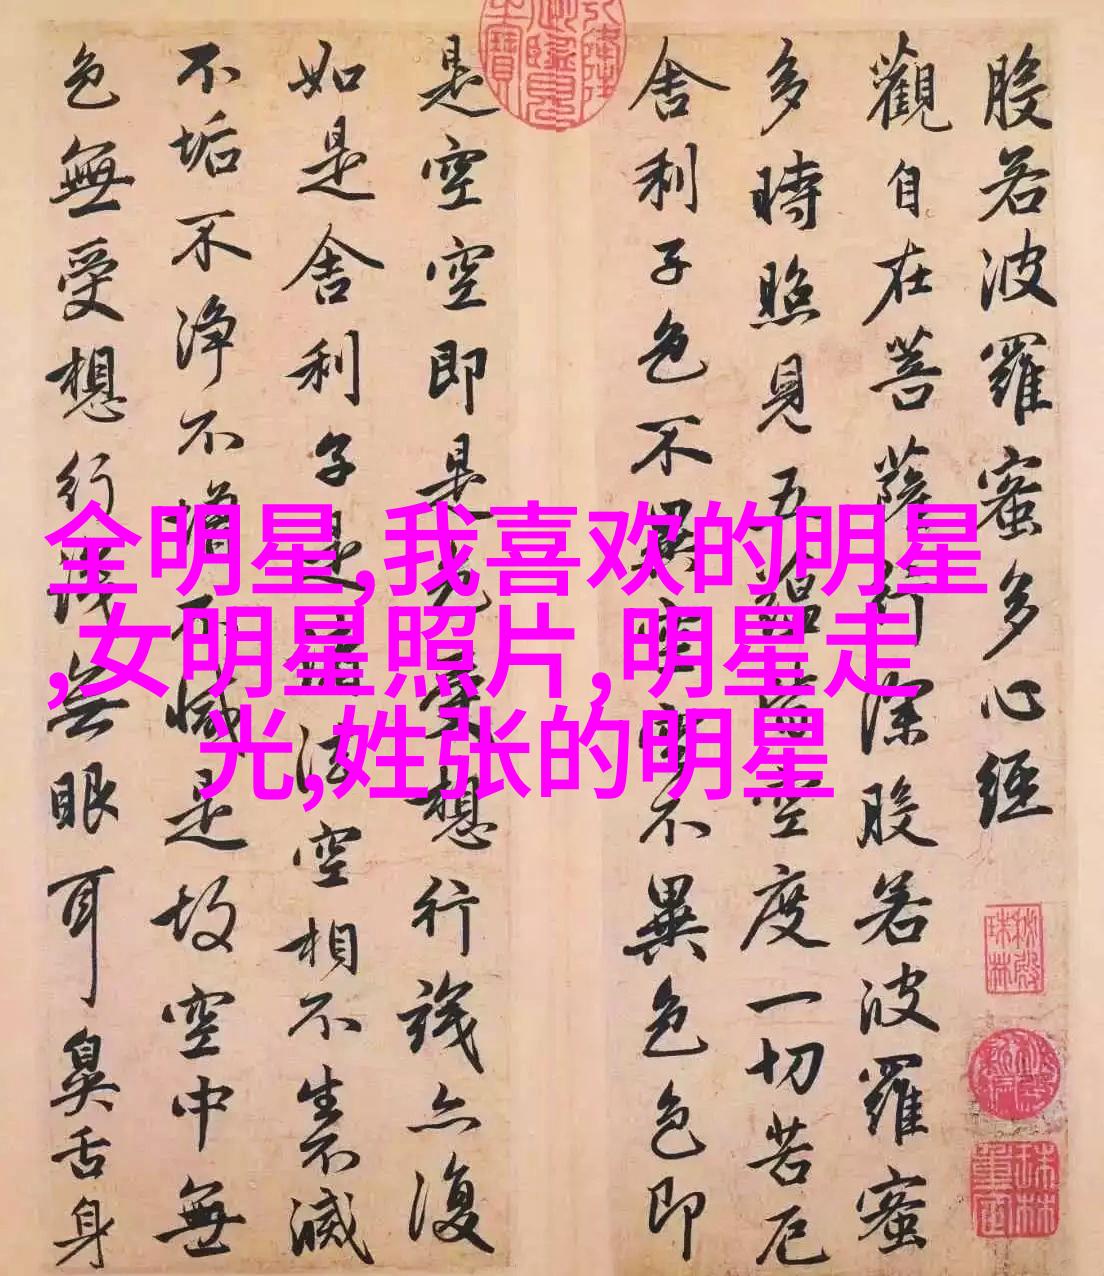 般若波羅蜜多心經
觀自在菩薩行深般若波羅蜜
多時照見五蘊皆空度一切苦厄
舍利子色不異空空不異色色即
是空空即是色受想行識亦復
如是舍利子是諸法空相不生不滅
不垢不淨不增不減是故空中無
色無受想行識無眼耳鼻舌身
全明星,我喜欢的明星
,女明星照片,明星走
光,姓张的明星
秘殿
珠林
珠林
重定